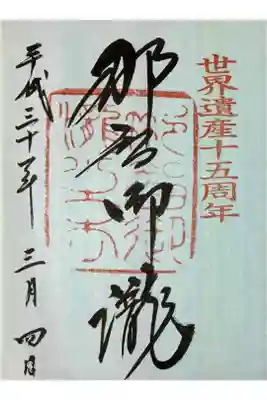 世界遺産十五周年
那智御瀧
平成三十一年 三月 四日